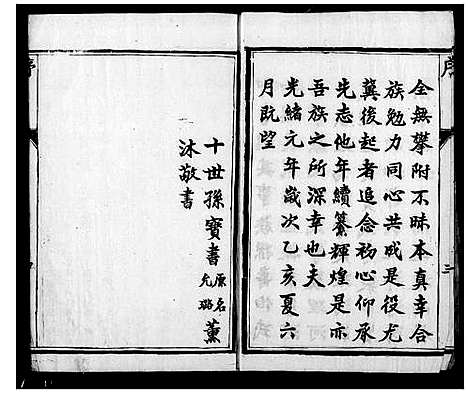 全無攀附不昧本真幸合
族勉力同心共成是役尤
冀後起者追念初心仰承
先志他年續纂輝煌是亦
吾族之所深幸也夫
光緒元年歲次乙亥夏六
月既望
三
十世孫寶書原名允璐薰
沐敬書